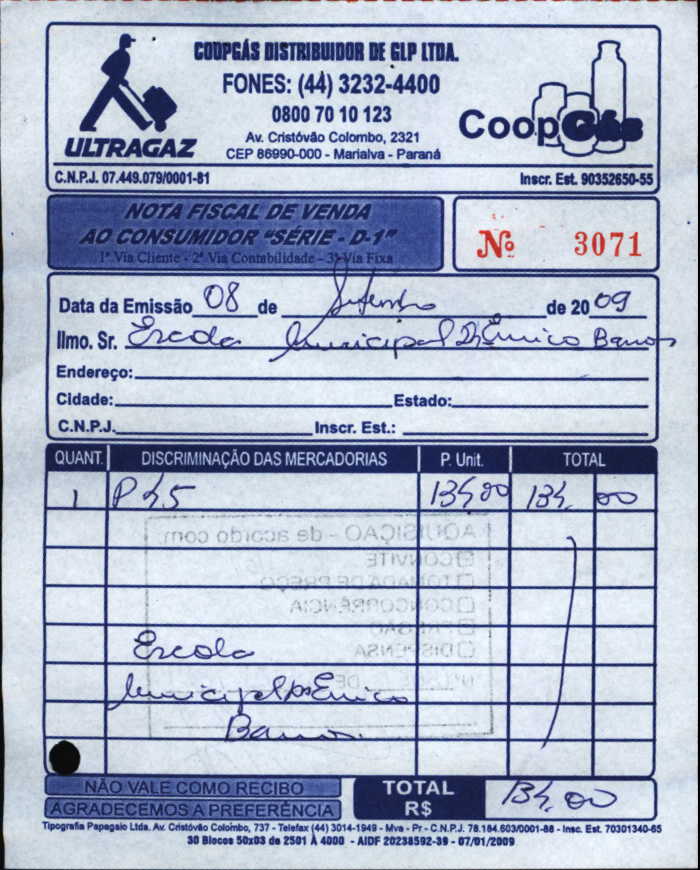 COOPGÁS DISTRIBUIDOR DE GLP LTDA.
FONES: (44) 3232-4400
0800 70 10 123
Av. Cristóvão Colombo, 2321
CEP 86990-000 - Marialva - Paraná
ULTRAGAZ
CoopGás
C.N.P.J. 07.449.079/0001-81 Inscr. Est. 90352650-55
NOTA FISCAL DE VENDA
AO CONSUMIDOR "SÉRIE - D-1"
1ª Via Cliente - 2ª Via Contabilidade - 3ª Via Fixa
Nº 3071
Data da Emissão 08 de Setembro de 2009
Ilmo. Sr. Escola Municipal Dr Eurico Barros
Endereço:
Cidade: Estado:
C.N.P.J. Inscr. Est.:
QUANT. DISCRIMINAÇÃO DAS MERCADORIAS P. Unit. TOTAL
1 P 45 134,00 134,00
AQUISIÇÃO - de acordo com:
CONVITE
TOMADA DE PREÇO
CONCORRÊNCIA
PREGÃO
DISPENSA
Nº DE
Escola
Municipal Dr Eurico
Barros
NÃO VALE COMO RECIBO
AGRADECEMOS A PREFERÊNCIA
TOTAL R$ 134,00
Tipografia Papagaio Ltda. Av. Cristóvão Colombo, 737 - Telefax (44) 3014-1949 - Mva - Pr - C.N.P.J. 78.184.603/0001-88 - Insc. Est. 70301340-65
30 Blocos 50x03 de 2501 À 4000 - AIDF 20238592-39 - 07/01/2009